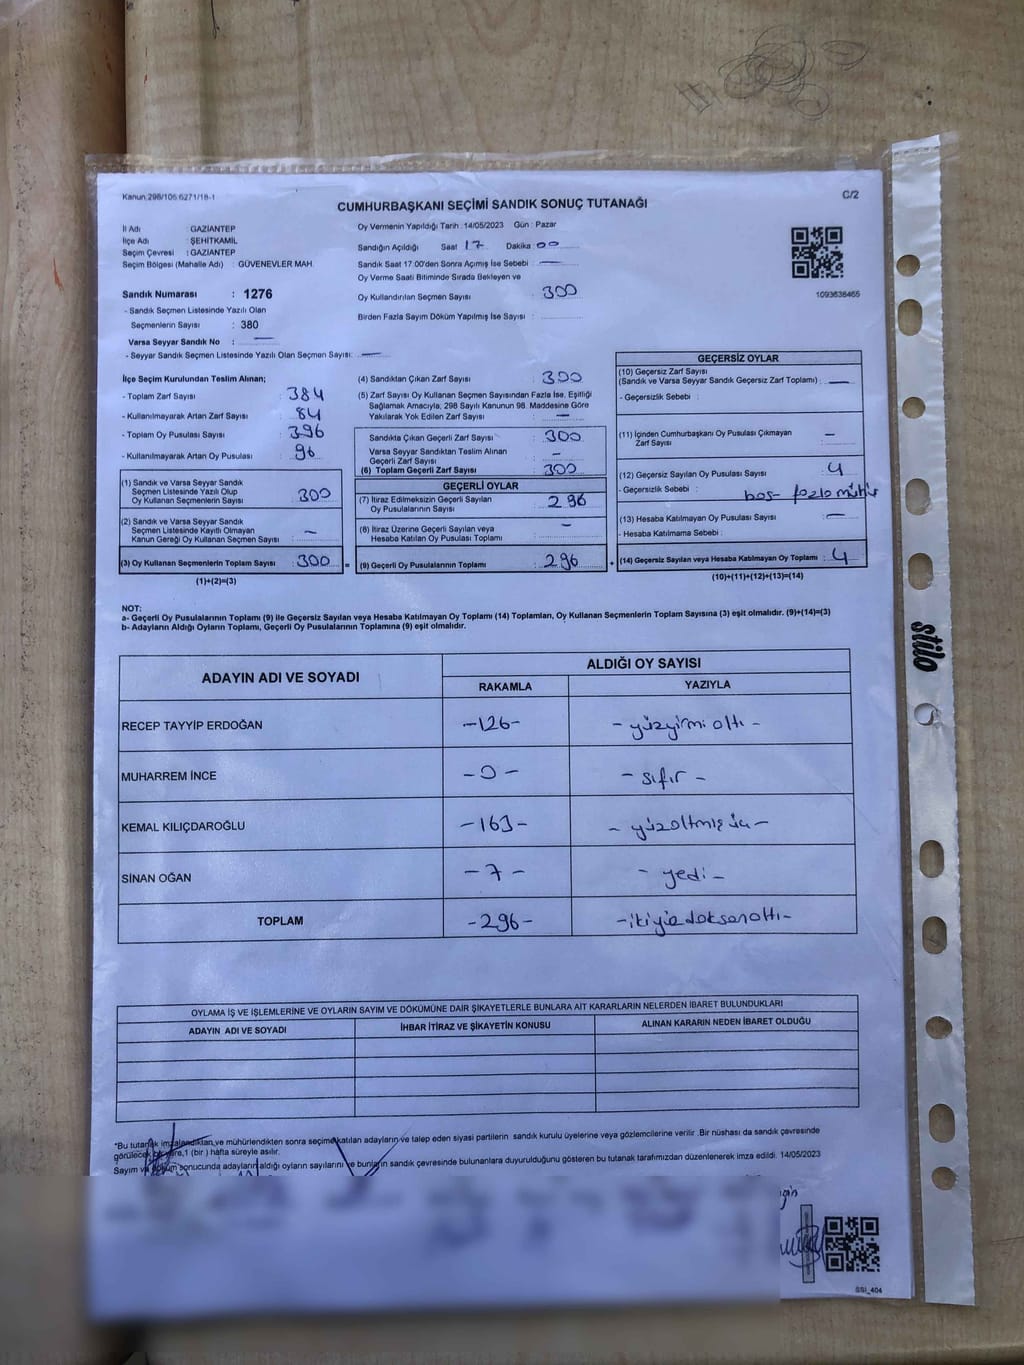 Kanun:298/105:6271/18-1
C/2
CUMHURBAŞKANI SEÇİMİ SANDIK SONUÇ TUTANAĞI
İl Adı : GAZİANTEP
İlçe Adı : ŞEHİTKAMİL
Seçim Çevresi : GAZİANTEP
Seçim Bölgesi (Mahalle Adı) : GÜVENEVLER MAH.
Sandık Numarası : 1276
- Sandık Seçmen Listesinde Yazılı Olan
Seçmenlerin Sayısı : 380
Varsa Seyyar Sandık No : —
- Seyyar Sandık Seçmen Listesinde Yazılı Olan Seçmen Sayısı: —
Oy Vermenin Yapıldığı Tarih :14/05/2023 Gün : Pazar
Sandığın Açıldığı Saat 17 Dakika 00
Sandık Saat 17:00'den Sonra Açımış İse Sebebi : —
Oy Verme Saati Bitiminde Sırada Bekleyen ve
Oy Kullandırılan Seçmen Sayısı : 300
Birden Fazla Sayım Döküm Yapılmış İse Sayısı :
1093638465
İlçe Seçim Kurulundan Teslim Alınan;
- Toplam Zarf Sayısı : 384
- Kullanılmayarak Artan Zarf Sayısı : 84
- Toplam Oy Pusulası Sayısı : 396
- Kullanılmayarak Artan Oy Pusulası : 96
(1) Sandık ve Varsa Seyyar Sandık
Seçmen Listesinde Yazılı Olup
Oy Kullanan Seçmenlerin Sayısı : 300
(2) Sandık ve Varsa Seyyar Sandık
Seçmen Listesinde Kayıtlı Olmayan
Kanun Gereği Oy Kullanan Seçmen Sayısı : —
(3) Oy Kullanan Seçmenlerin Toplam Sayısı : 300
(1)+(2)=(3)
(4) Sandıktan Çıkan Zarf Sayısı : 300
(5) Zarf Sayısı Oy Kullanan Seçmen Sayısından Fazla İse, Eşitliği
Sağlamak Amacıyla, 298 Sayılı Kanunun 98. Maddesine Göre
Yakılarak Yok Edilen Zarf Sayısı : —
Sandıkta Çıkan Geçerli Zarf Sayısı : 300
Varsa Seyyar Sandıktan Teslim Alınan
Geçerli Zarf Sayısı : —
(6) Toplam Geçerli Zarf Sayısı : 300
GEÇERLİ OYLAR
(7) İtiraz Edilmeksizin Geçerli Sayılan
Oy Pusulalarının Sayısı : 296
(8) İtiraz Üzerine Geçerli Sayılan veya
Hesaba Katılan Oy Pusulası Toplamı : —
= (9) Geçerli Oy Pusulalarının Toplamı : 296
GEÇERSİZ OYLAR
(10) Geçersiz Zarf Sayısı
(Sandık ve Varsa Seyyar Sandık Geçersiz Zarf Toplamı) : —
- Geçersizlik Sebebi :
(11) İçinden Cumhurbaşkanı Oy Pusulası Çıkmayan
Zarf Sayısı : —
(12) Geçersiz Sayılan Oy Pusulası Sayısı : 4
- Geçersizlik Sebebi : boş- fazla mühür
(13) Hesaba Katılmayan Oy Pusulası Sayısı : —
- Hesaba Katılmama Sebebi :
+ (14) Geçersiz Sayılan veya Hesaba Katılmayan Oy Toplamı : 4
(10)+(11)+(12)+(13)=(14)
NOT:
a- Geçerli Oy Pusulalarının Toplamı (9) ile Geçersiz Sayılan veya Hesaba Katılmayan Oy Toplamı (14) Toplamları, Oy Kullanan Seçmenlerin Toplam Sayısına (3) eşit olmalıdır. (9)+(14)=(3)
b- Adayların Aldığı Oyların Toplamı, Geçerli Oy Pusulalarının Toplamına (9) eşit olmalıdır.
stilo
ADAYIN ADI VE SOYADI
ALDIĞI OY SAYISI
RAKAMLA YAZIYLA
RECEP TAYYİP ERDOĞAN -126- - yüzyirmi altı -
MUHARREM İNCE -0- - sıfır -
KEMAL KILIÇDAROĞLU -163- - yüzaltmış üç -
SİNAN OĞAN -7- - yedi -
TOPLAM -296- - ikiyüzdoksanaltı -
OYLAMA İŞ VE İŞLEMLERİNE VE OYLARIN SAYIM VE DÖKÜMÜNE DAİR ŞİKAYETLERLE BUNLARA AİT KARARLARIN NELERDEN İBARET BULUNDUKLARI
ADAYIN ADI VE SOYADI İHBAR İTİRAZ VE ŞİKAYETİN KONUSU ALINAN KARARIN NEDEN İBARET OLDUĞU
*Bu tutanak imzalandıktan ve mühürlendikten sonra seçime katılan adayların ve talep eden siyasi partilerin sandık kurulu üyelerine veya gözlemcilerine verilir .Bir nüshası da sandık çevresinde
görülecek bir yere,1 (bir ) hafta süreyle asılır.
Sayım ve döküm sonucunda adayların aldığı oyların sayılarını ve bunların sandık çevresinde bulunanlara duyurulduğunu gösteren bu tutanak tarafımızdan düzenlenerek imza edildi. 14/05/2023
SSI_404